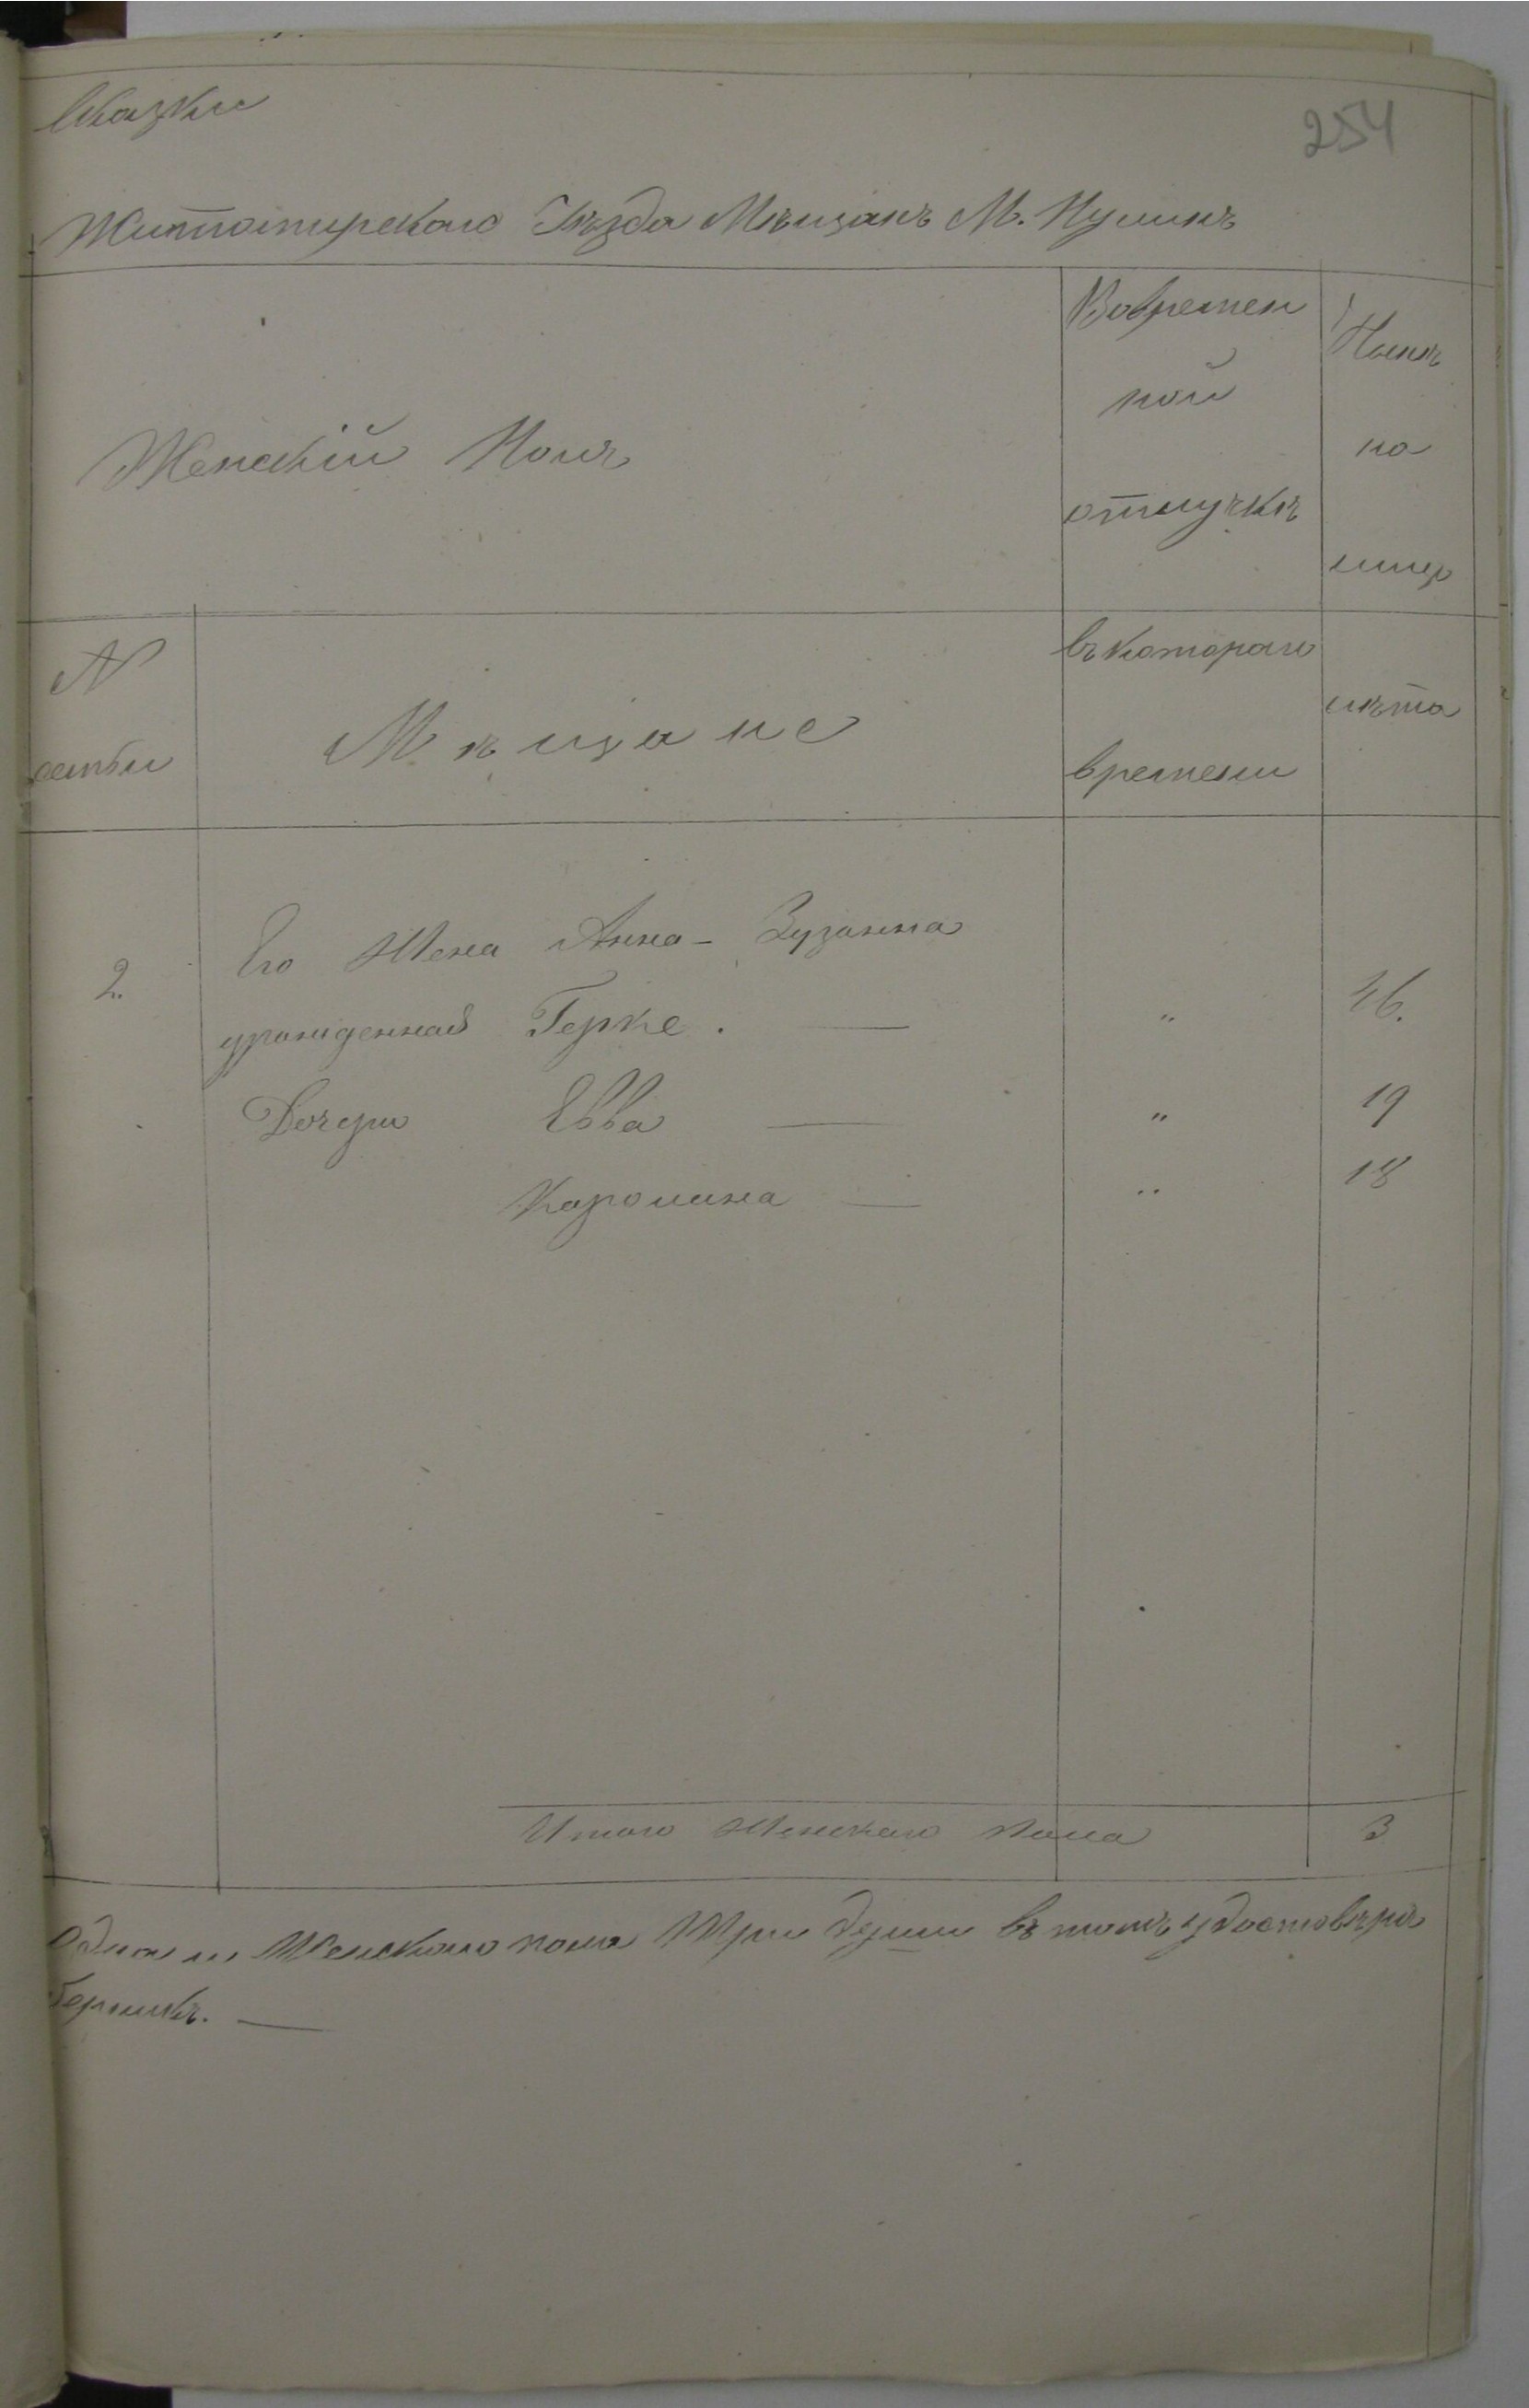 Сказки
254
Житомирскаго Уѣзда Мѣщанъ М. Пулинъ
Женскій Полъ
Вовремен
ной
отлучкѣ
Нынѣ
на
лицо
№
семьи
Мѣщане
въ котораго
времени
лѣта
2.
Его Жена Анна - Зузанна
урожденная Герке. —
"
46.
Дочери Евва —
"
19
Каролина —
"
18
Итого Женскаго Пола
3
Одна и Женскаго пола Три души въ томъ удостовѣрѣ